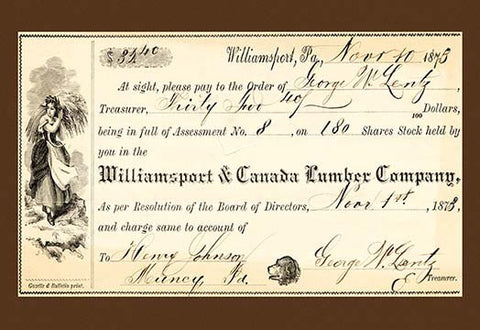 $ 32 40
Williamsport, Pa, Novr 10 1873
At sight, please pay to the Order of George W Lentz,
Treasurer, Thirty Two 40/100 Dollars,
being in full of Assessment No. 8, on 180 Shares Stock held by
you in the
Williamsport & Canada Lumber Company,
As per Resolution of the Board of Directors, Novr 1st, 1873,
and charge same to account of
To Henry Johnson George W. Lentz
Muncy, Pa. Treasurer.
Gazette & Bulletin print.